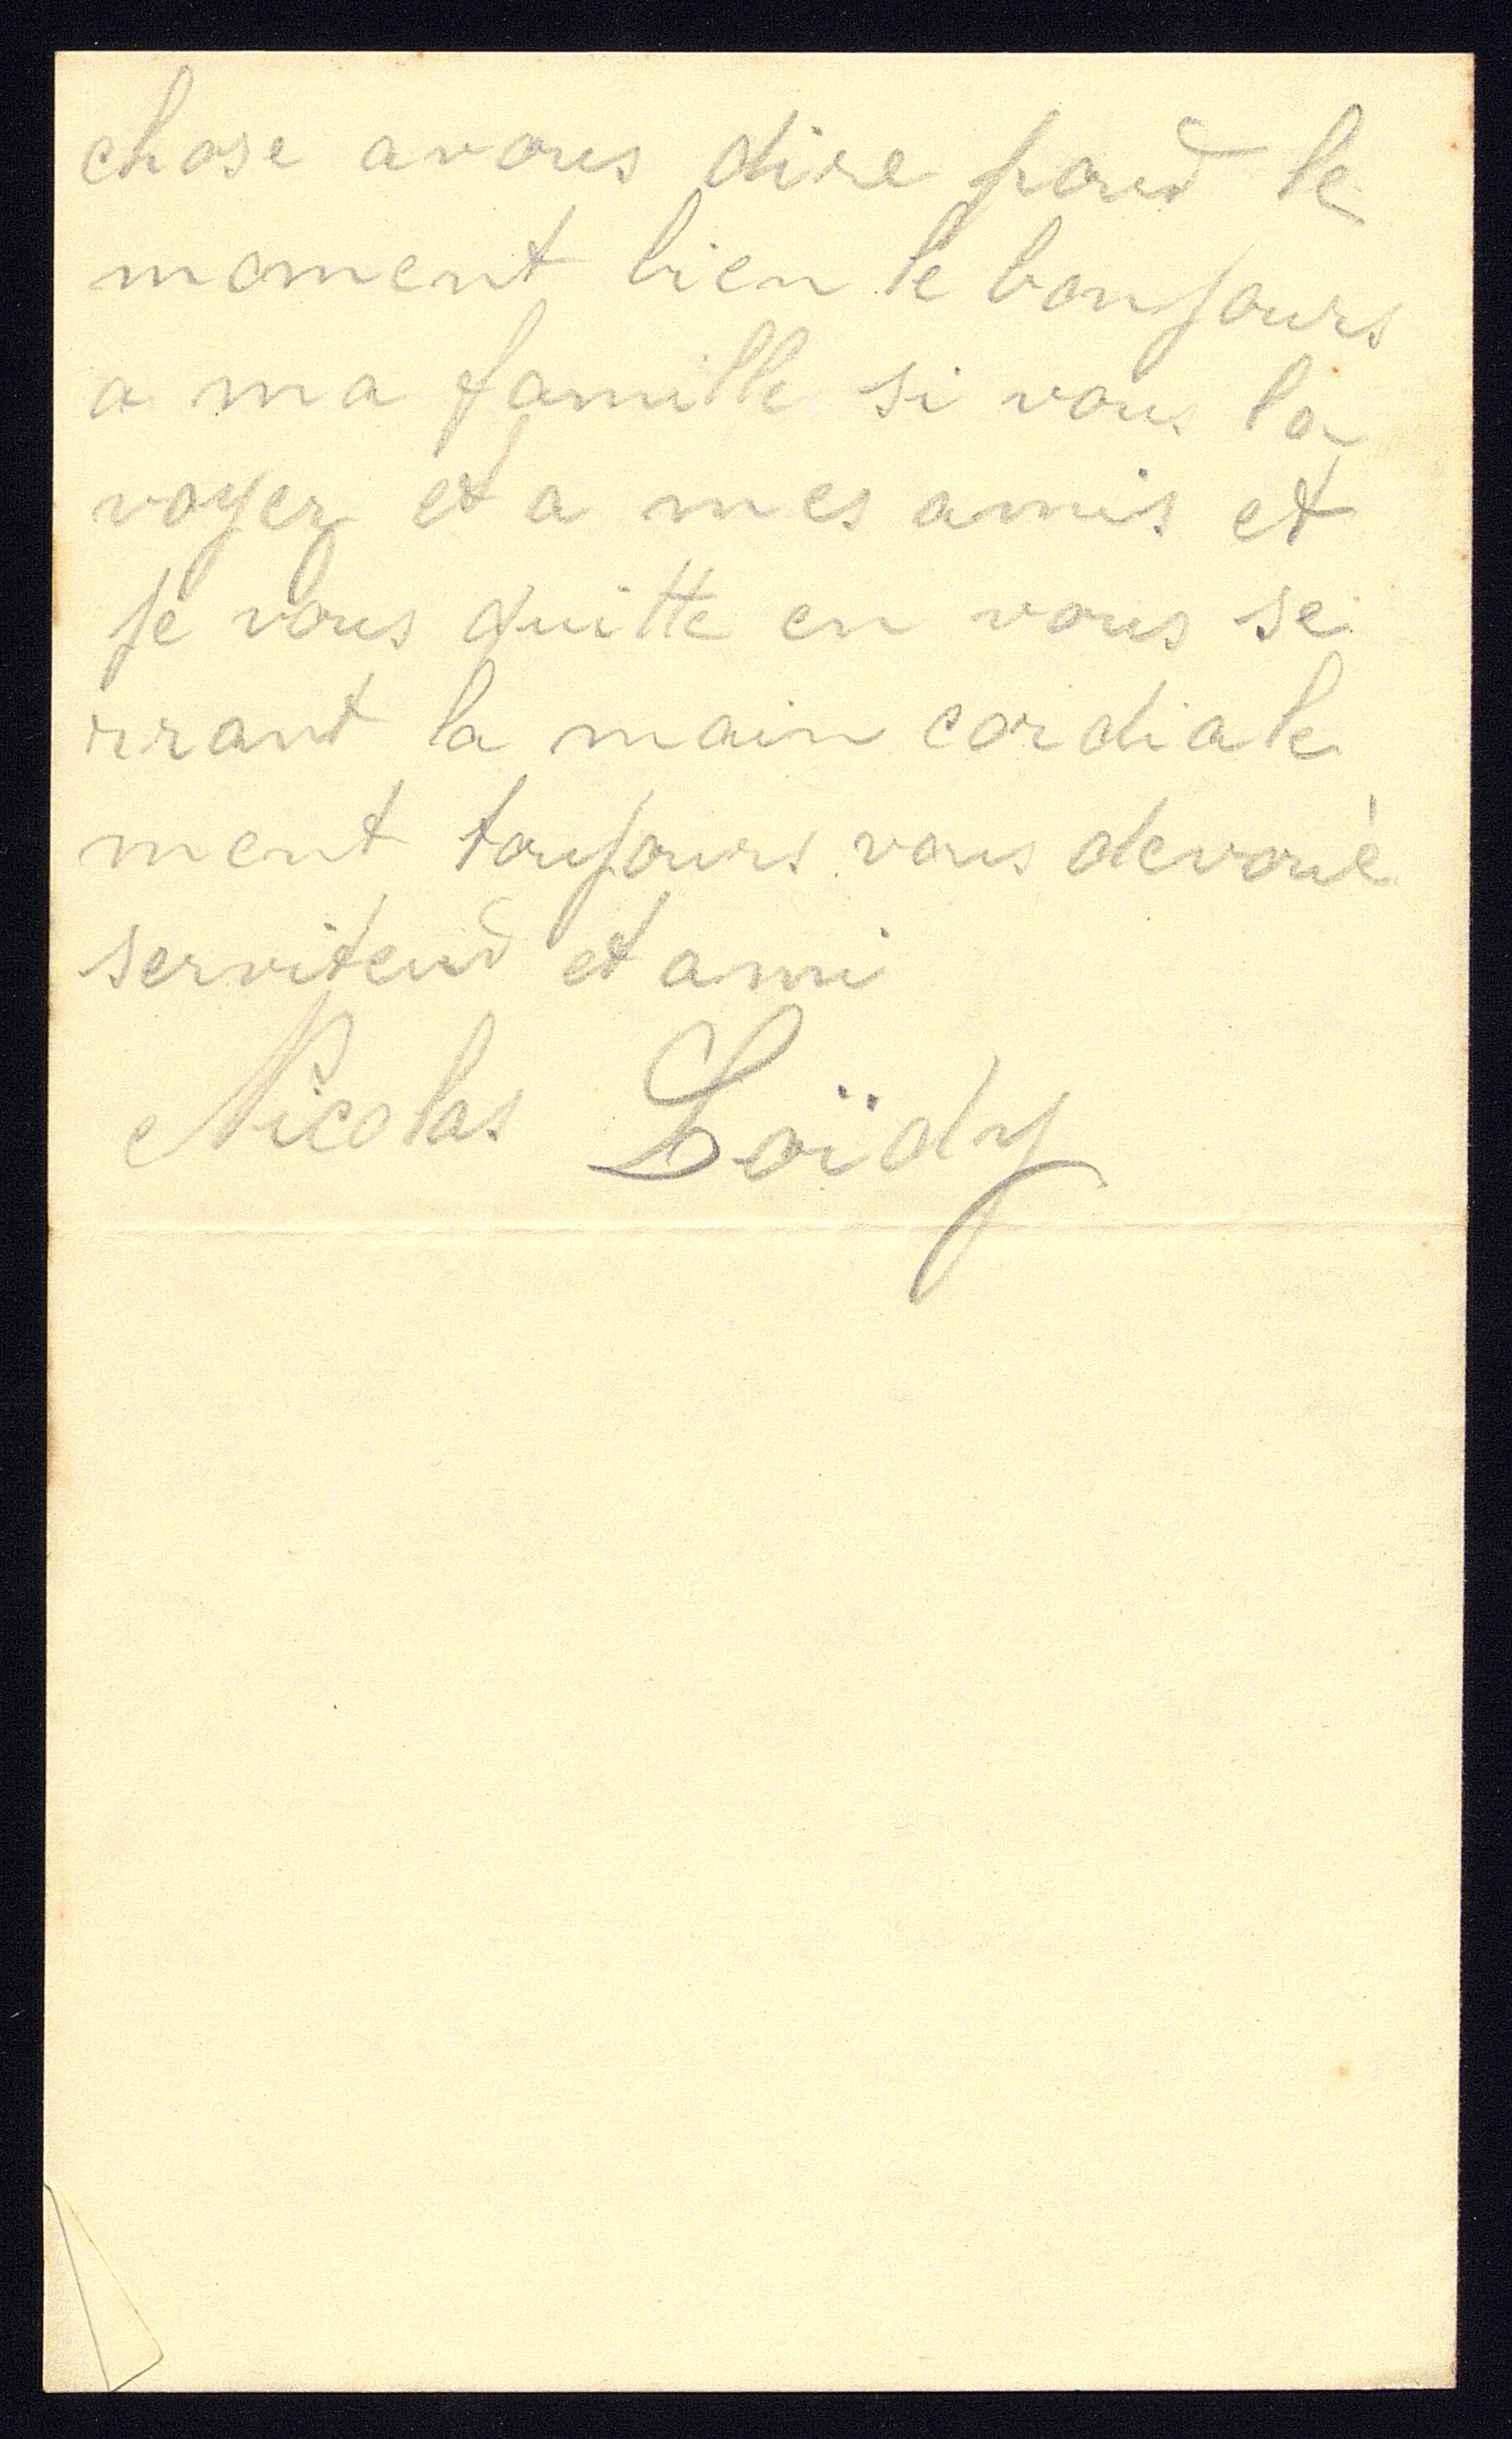 chose avous dire pour le
moment bien le bonjours
a ma famille si vous la
voyez et a mes amis et
je vous quitte en vous se
rrant la main cordiale
ment toujours vous devoué
serviteur et ami
Nicolas Loïdy